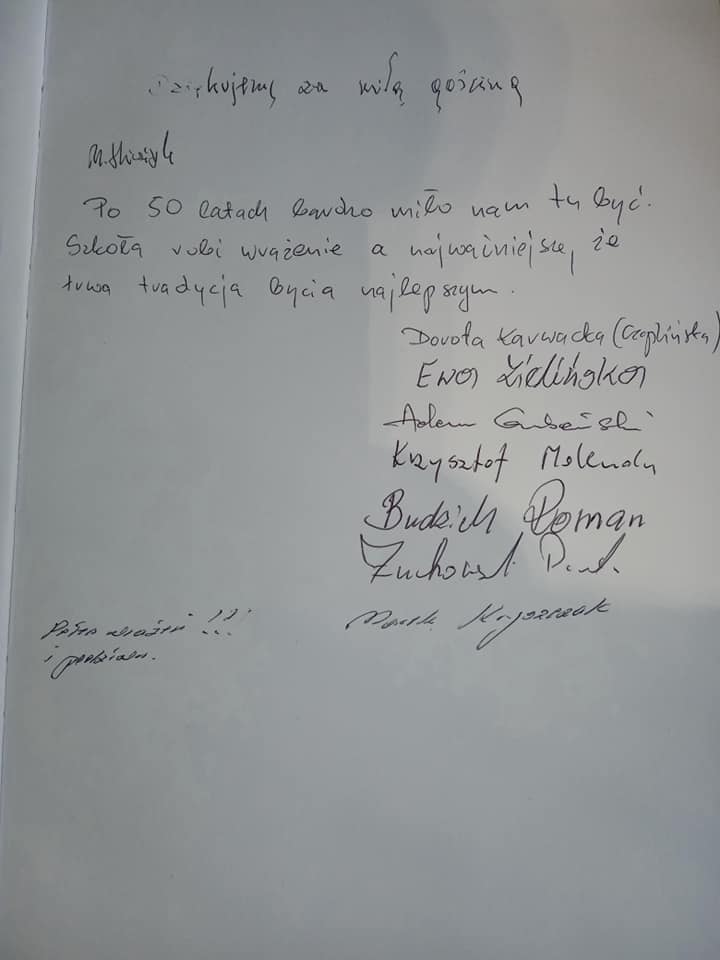 Dziękujemy za miłą gościnę
Po 50 latach bardzo miło nam tu być.
Szkoła robi wrażenie a najważniejsze, że
trwa tradycja bycia najlepszym.
Dorota Karwacka (Czaplińska)
Ewa Zielińska
Adam
Krzysztof Molenda
Budzich Roman
Żuchowski
Marek Krysztak
Pełen wrażeń !!!
i podziwu.